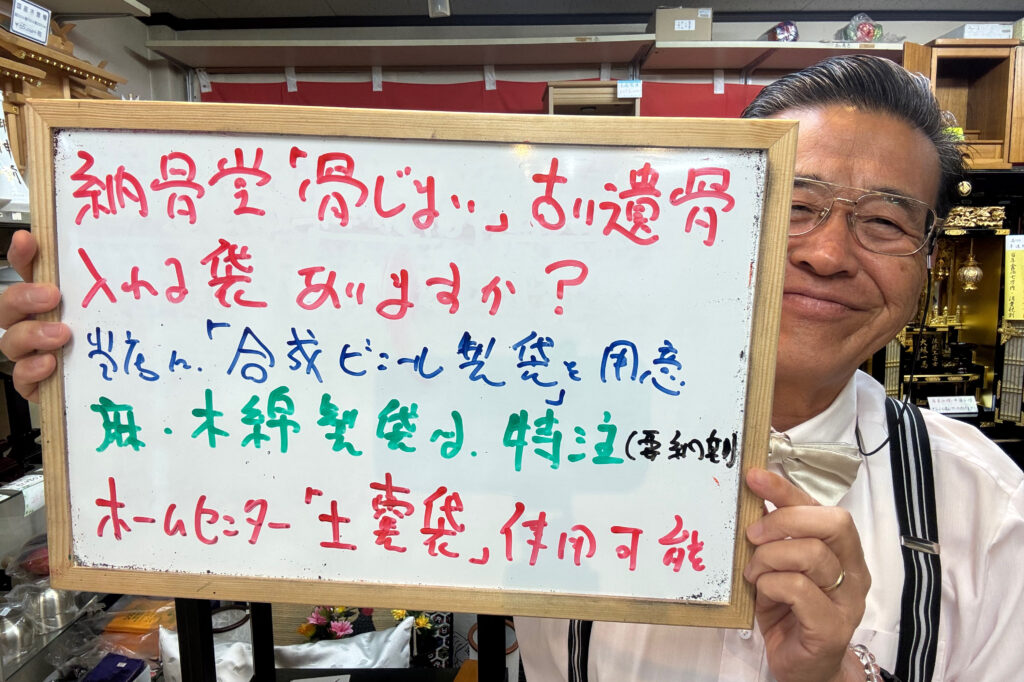 納骨堂「骨じまい」古い遺骨
入れる袋 ありますか?
当店は、「合成ビニール製袋」を用意
麻・木綿製袋は、特注(要納期)
ホームセンター「土嚢袋」使用可能